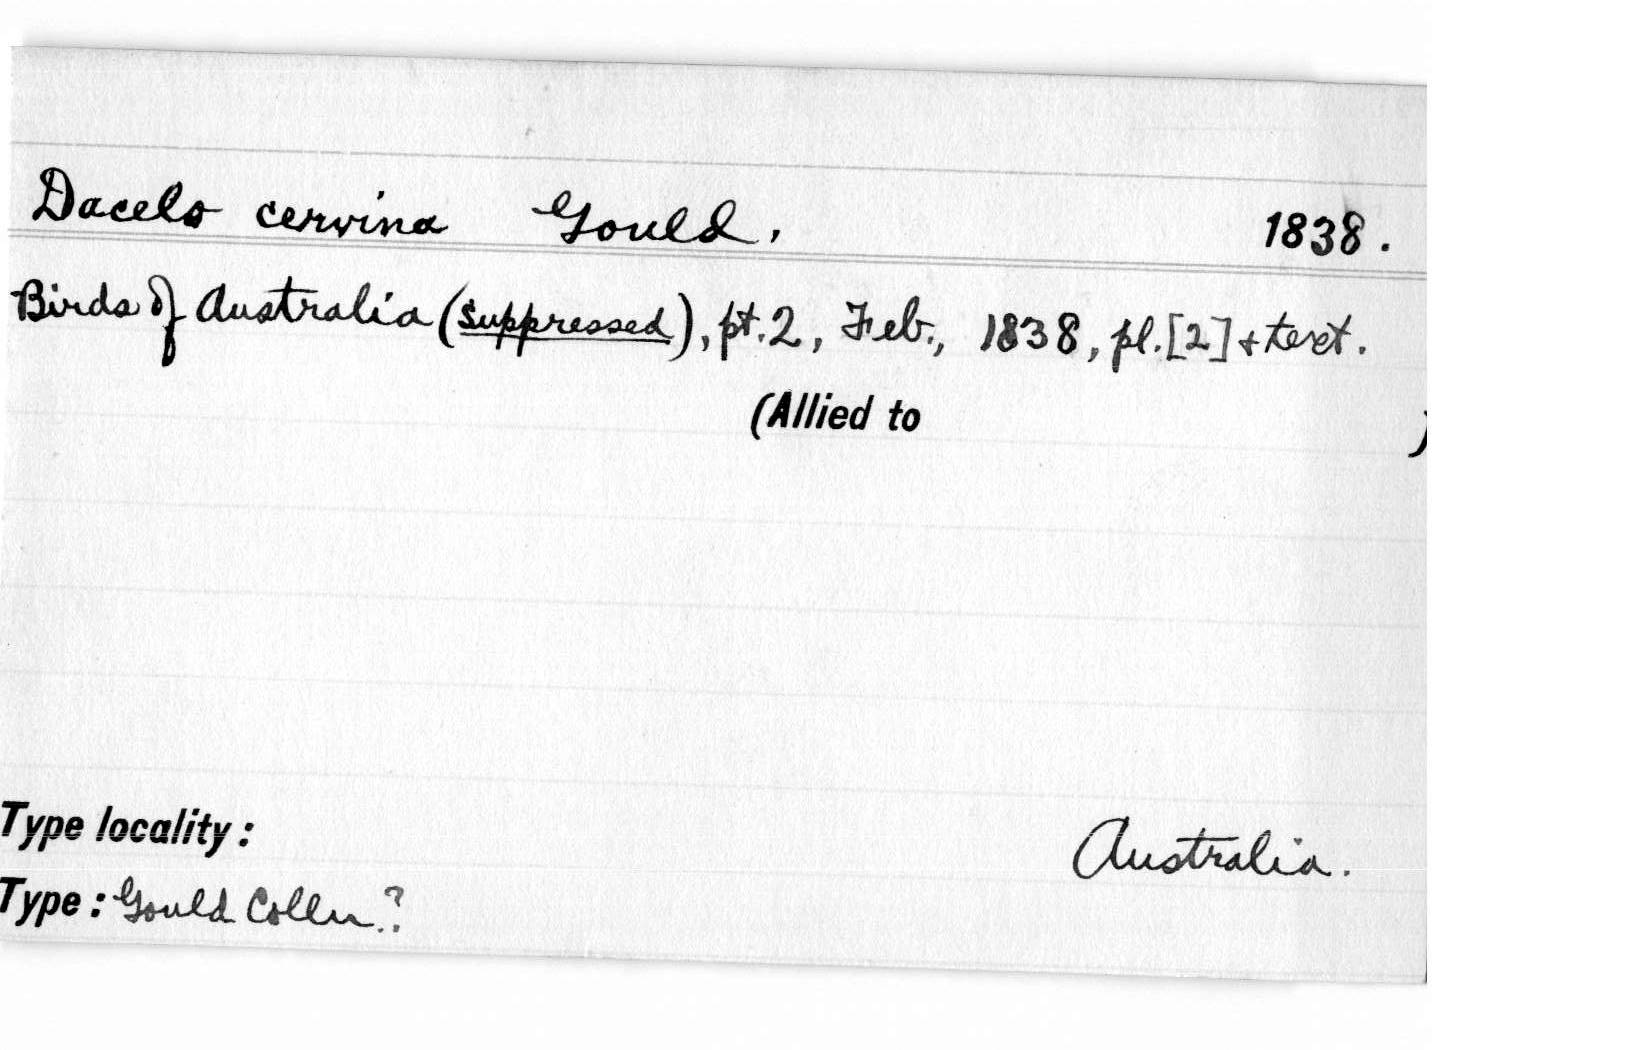 Dacelo cervina Gould, 1838.
Birds of Australia (suppressed), pt. 2, Feb., 1838, pl. [2] + text.
(Allied to )
Type locality: Australia.
Type: Gould Colln.?